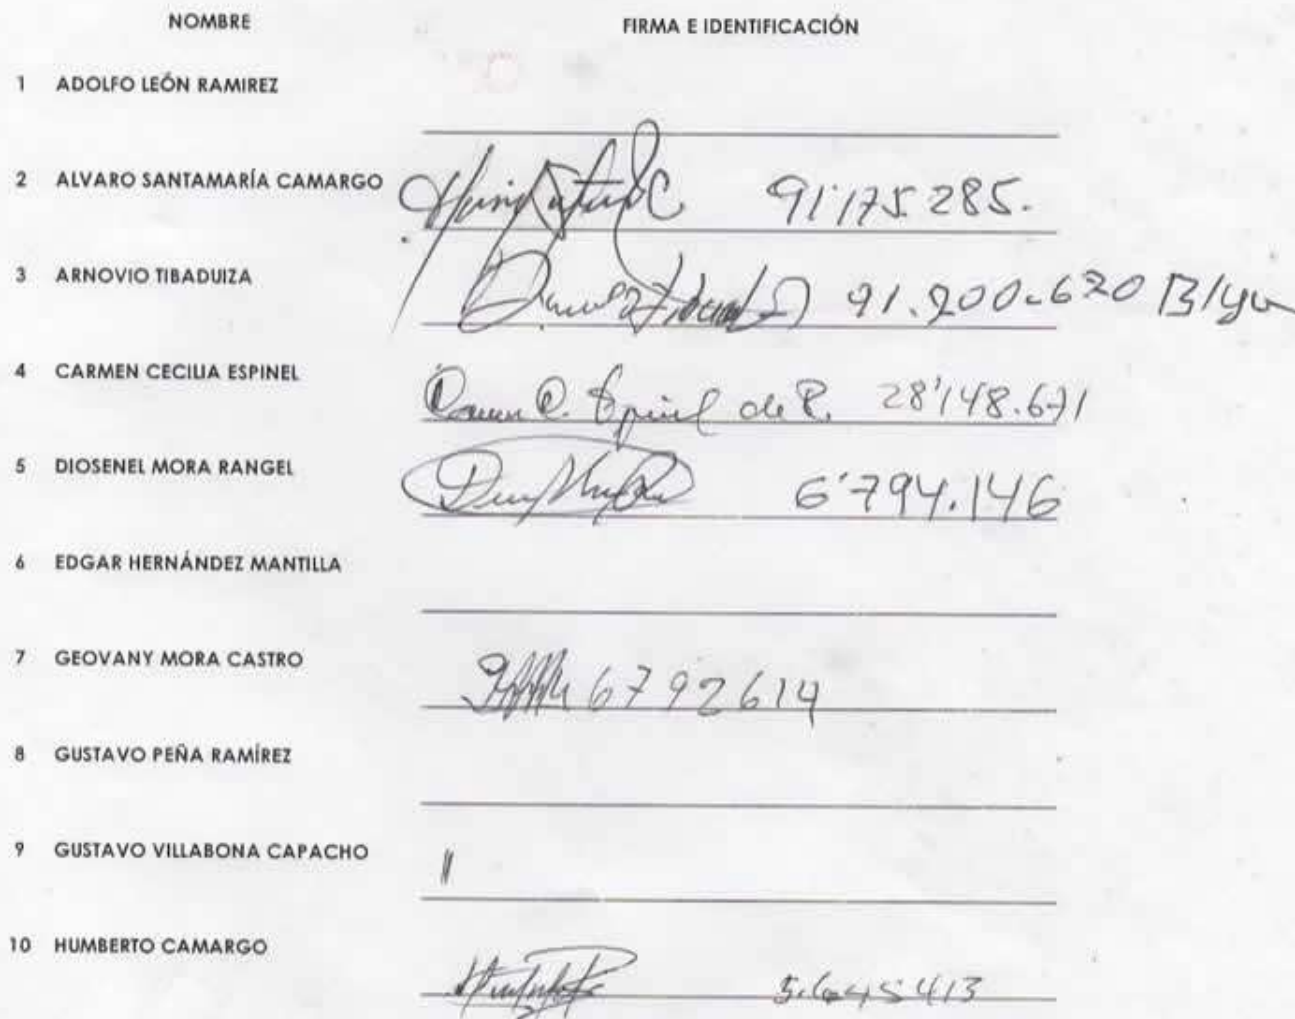 NOMBRE FIRMA E IDENTIFICACIÓN
1 ADOLFO LEÓN RAMIREZ
2 ALVARO SANTAMARÍA CAMARGO 91'175.285.
3 ARNOVIO TIBADUIZA 91.200.620 B/ga
4 CARMEN CECILIA ESPINEL Carmen C. Espinel de R. 28'148.671
5 DIOSENEL MORA RANGEL 6'794.146
6 EDGAR HERNÁNDEZ MANTILLA
7 GEOVANY MORA CASTRO 6792614
8 GUSTAVO PEÑA RAMÍREZ
9 GUSTAVO VILLABONA CAPACHO
10 HUMBERTO CAMARGO 5.645413